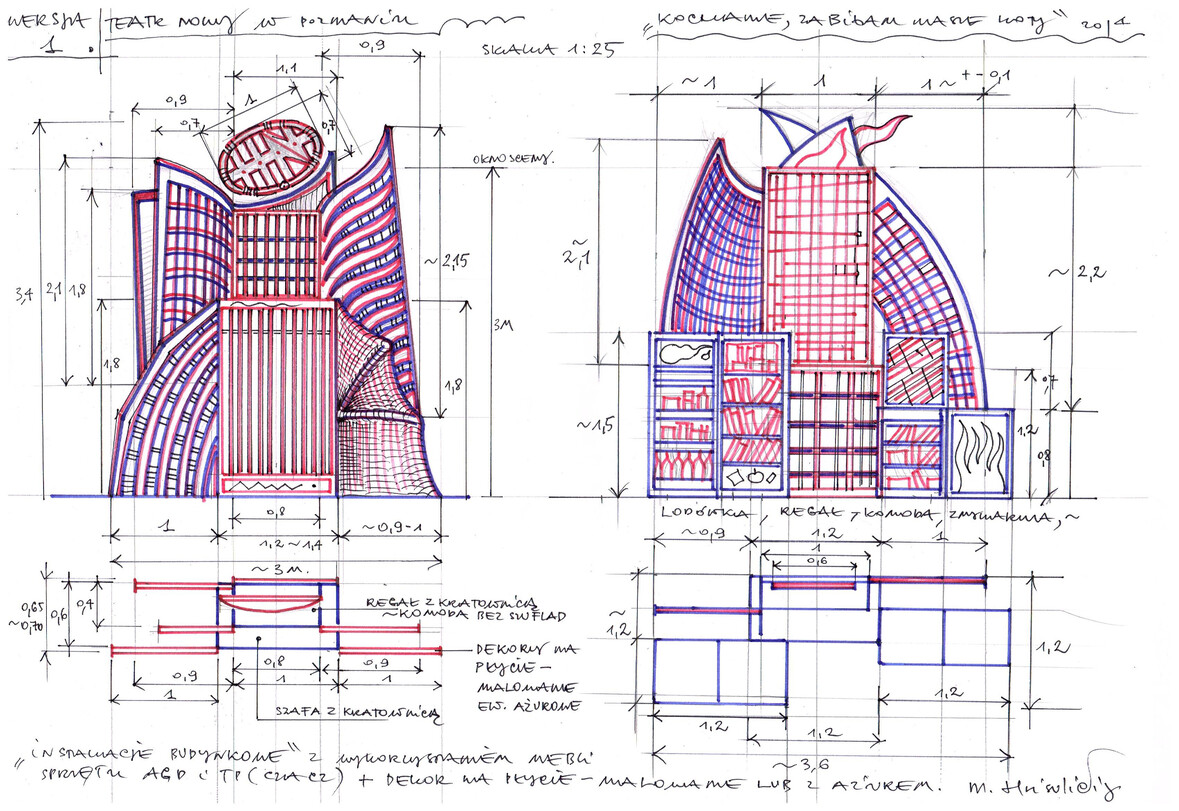 WERSJA 1.
TEATR NOWY W POZNANIU
SKALA 1:25
„KOCHANIE, ZABIŁAM NASZE KOTY" 2014
0,9
1,1
0,9
1
0,7
0,7
OKNO SCENY.
3,4
2,1
1,8
1,8
~2,15
3M
1,8
1
0,8
~0,9-1
1,2 ~ 1,4
~ 3 M.
~ 1
1
1 ~ +- 0,1
~ 2,1
~ 2,2
~1,5
0,7
1,2
0,8
LODÓWKA, REGAŁ, KOMODA, ZMYWARKA, ~
0,65 ~0,70
0,6
0,4
REGAŁ Z KRATOWNICĄ
~KOMODA BEZ SZUFLAD
DEKORY NA
PŁYCIE –
MALOWANE
EW. AŻUROWE
0,9
0,8
0,9
1
1
1
SZAFA Z KRATOWNICĄ
~0,9
1,2
1
1
0,6
~ 1,2
1,2
1,2
1,2
1,2
~ 3,6
„INSTALACJE BUDYNKOWE" Z WYKORZYSTANIEM MEBLI
SPRZĘTU AGD i TP (CZACZ) + DEKOR NA PŁYCIE – MALOWANE LUB Z AŻUREM.